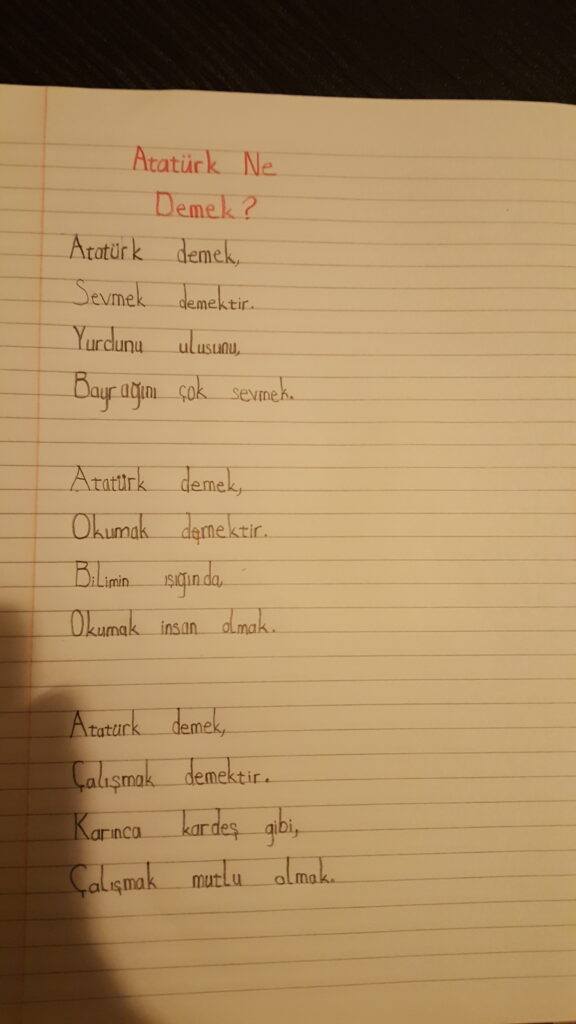 Atatürk Ne
Demek?
Atatürk demek,
Sevmek demektir.
Yurdunu ulusunu,
Bayrağını çok sevmek.
Atatürk demek,
Okumak demektir.
Bilimin ışığında
Okumak insan olmak.
Atatürk demek,
Çalışmak demektir.
Karınca kardeş gibi,
Çalışmak mutlu olmak.